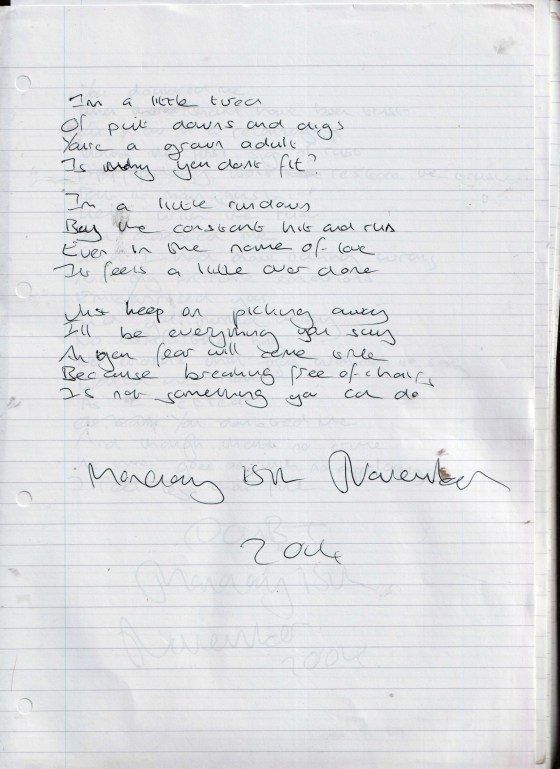 Im a little tired
Of put downs and digs
Youre a grown adult
Is why you dont fit?
Im a little rundown
By the constant hit and run
Even in the name of love
It feels a little over done
Just keep on picking away
I'll be everything you say
your fear will come
Because breaking free of chains
Is not something you can do
Monday 15th November
2004